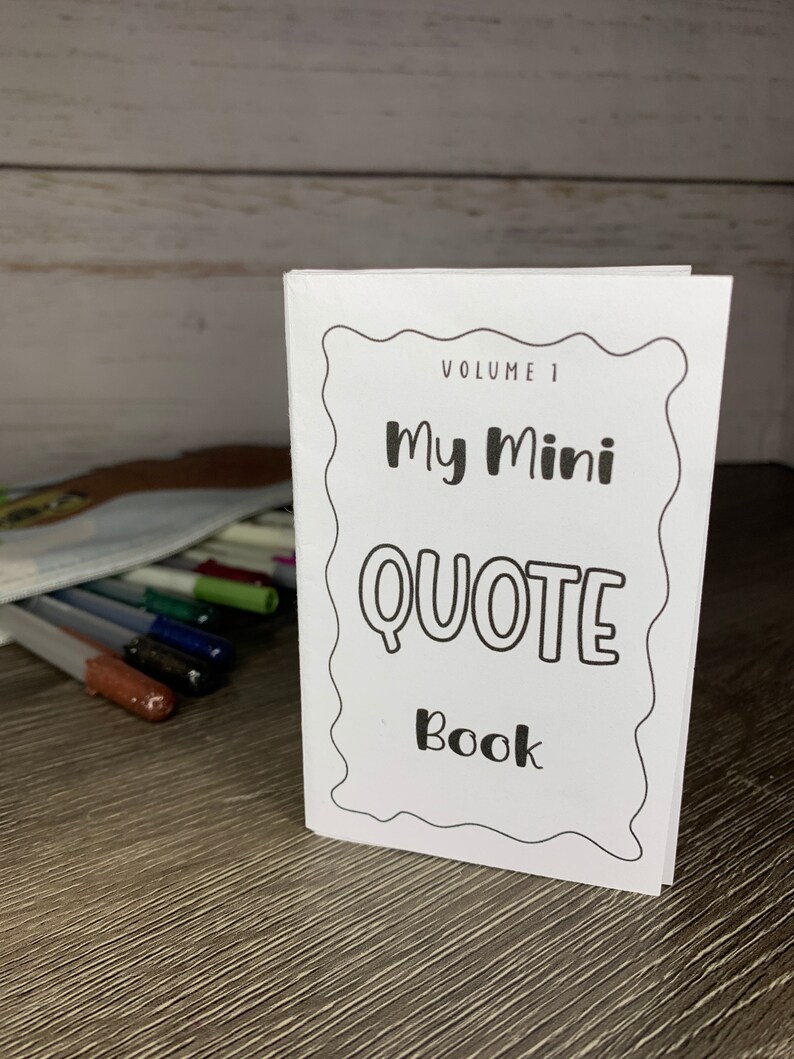 VOLUME 1
My Mini
QUOTE
Book